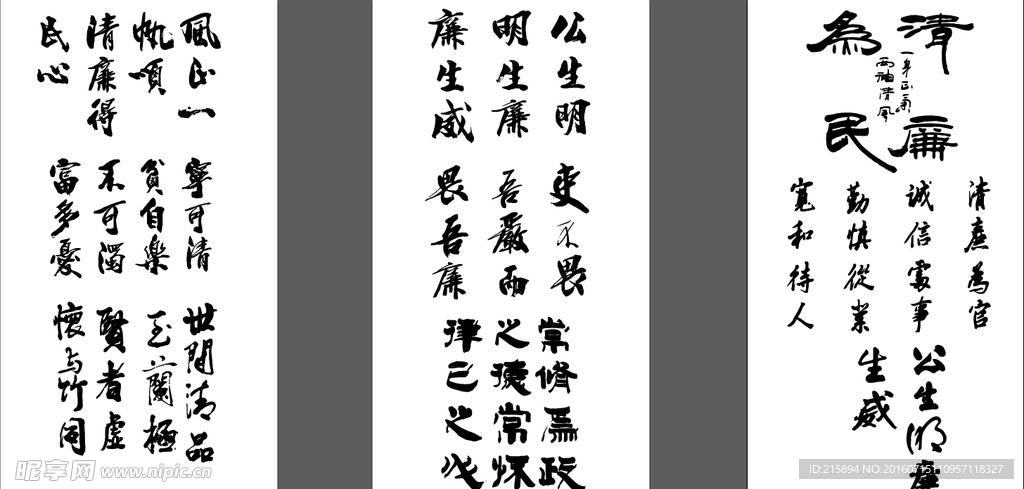 風正一
帆順
清廉得
民心
寧可清
貧自樂
不可濁
富多憂
世間清品
至蘭極
賢者虛
懷与竹同
公生明
明生廉
廉生威
吏不畏
吾嚴而
畏吾廉
常修為政
之德常怀
律己之心
清廉
為民
一身正氣
兩袖清風
清廉為官
誠信處事
勤慎從業
寬和待人
公生明廉
生威
昵享网 www.nipic.cn
ID:215894 NO:20160715110957118327